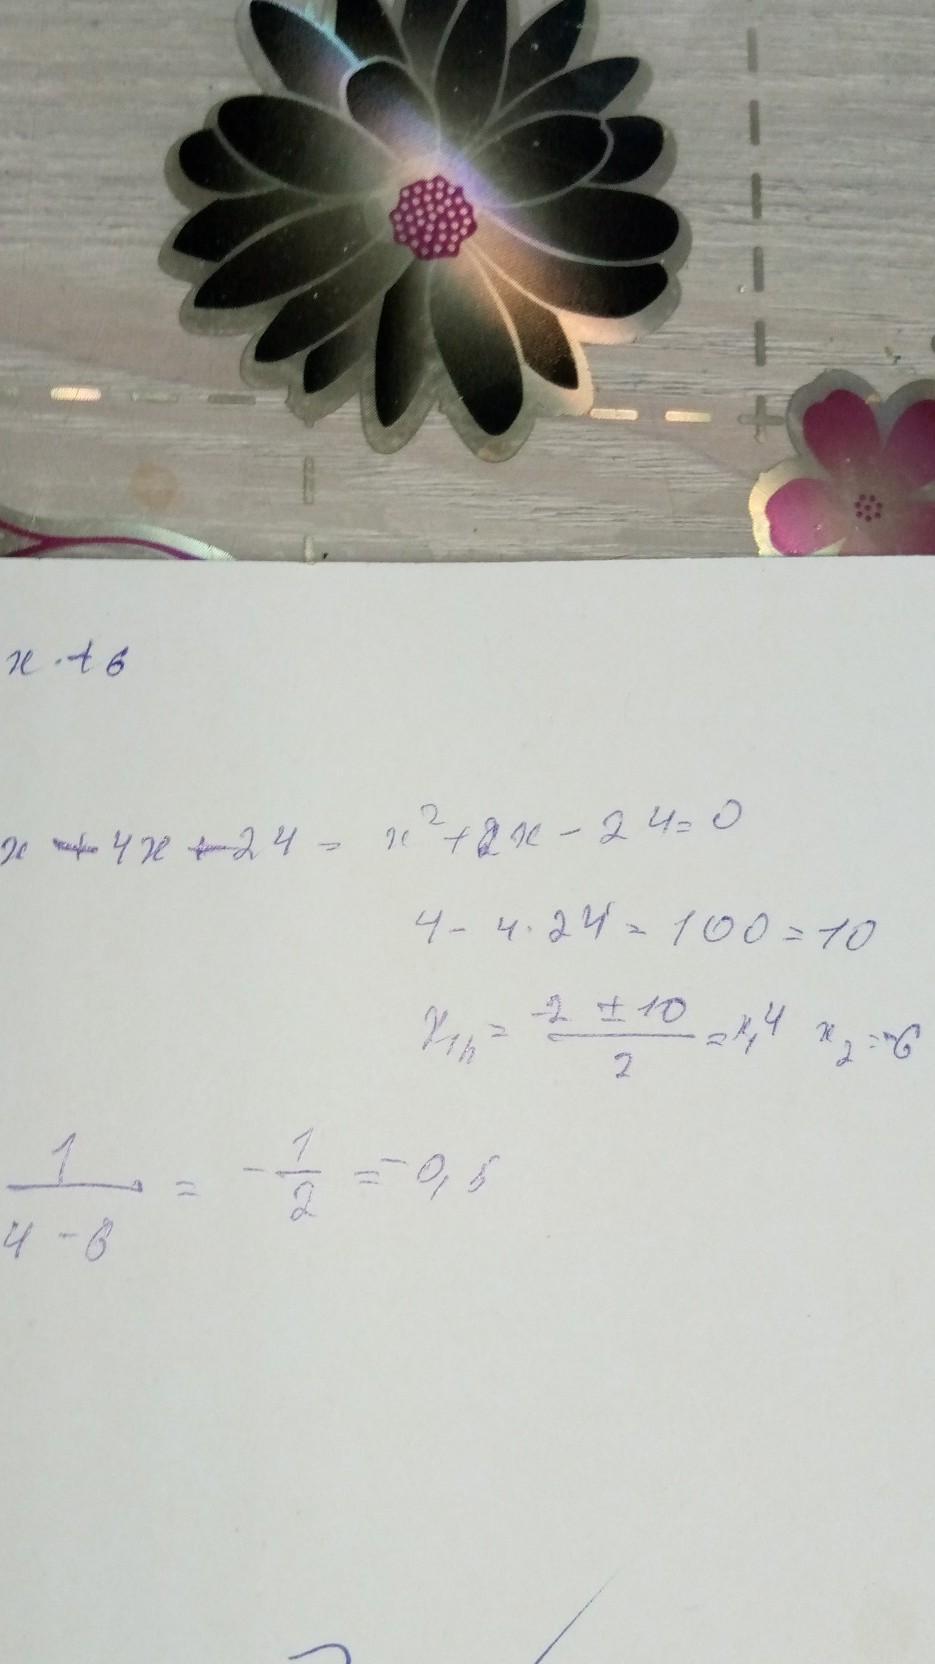 x · + 6
x + 4x + 24 = x² + 2x - 24 = 0
4 - 4 · 24 = 100 = 10
= -2 ± 10 / 2 = x₁ 4 x₂ = -6
1 / 4 - 6 = - 1 / 2 = - 0,5